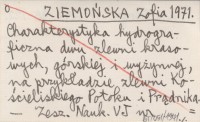 o ZIEMOŃSKA Zofia 1971.
Charakterystyka hydrogra-
ficzna dwu zlewni kraso-
wych, górskiej i wyżynnej,
na przykładzie zlewni Ko-
ścieliskiego Potoku i Prądnika.
Zesz. Nauk. UJ nr